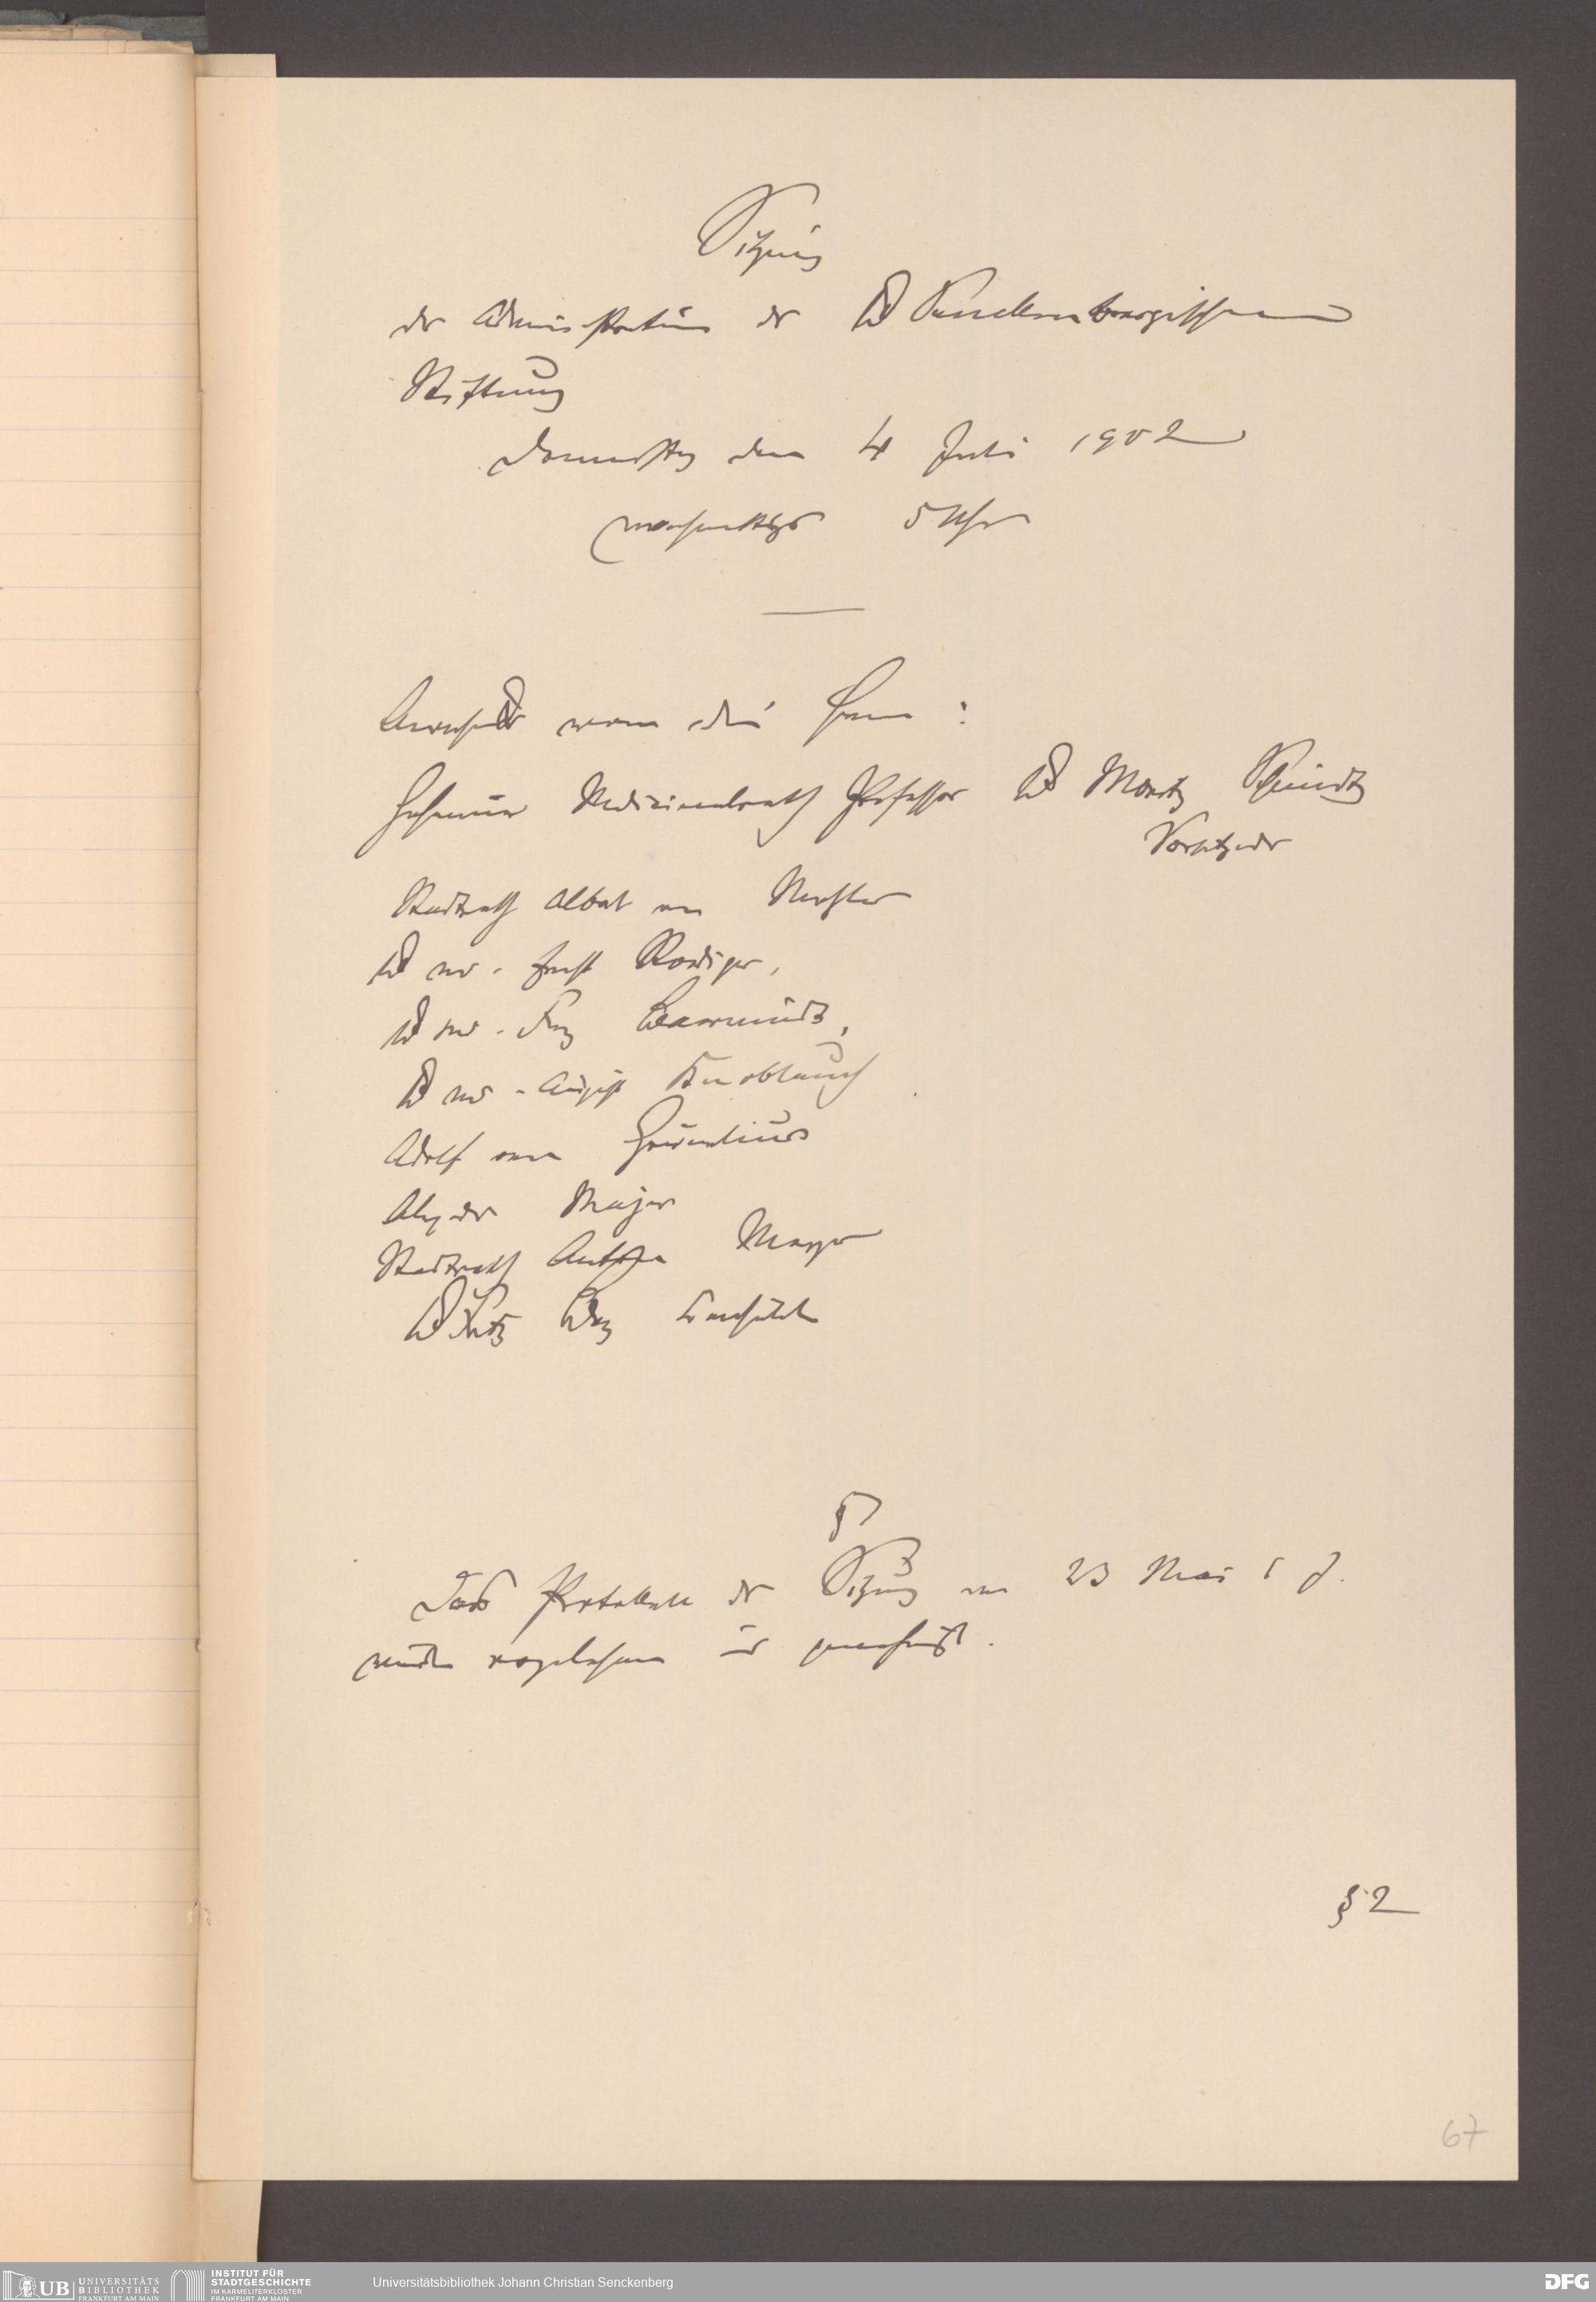 Sitzung
der Administration der Dr Senckenbergischen
Stiftung
Donnerstag den 4 Juli 1902
nachmittags 5 Uhr
Anwesend waren die Herrn:
Geheimer Medizinalrath Professor Dr Moritz Schmidt
Vorsitzender
Stadtrath Albert von Metzler
Dr med. Ernst Roediger,
Dr med. Franz
Dr med. August Knoblauch
Adolf von Grunelius
Alexander Majer
Stadtrath Anton Meyer
Dr Fritz Berg Consulent
§ 1
Das Protokoll der Sitzung vom 23 Mai l J.
wurde vorgelesen und genehmigt.
§ 2
67
UB UNIVERSITÄTS
BIBLIOTHEK
FRANKFURT AM MAIN
INSTITUT FÜR
STADTGESCHICHTE
IM KARMELITERKLOSTER
FRANKFURT AM MAIN
Universitätsbibliothek Johann Christian Senckenberg
DFG